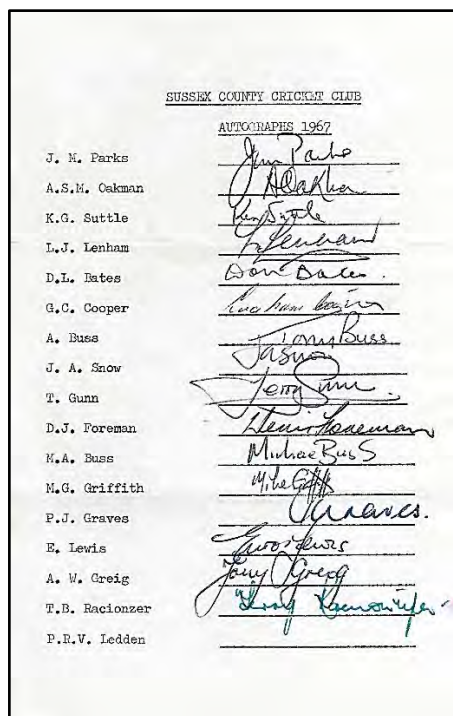 SUSSEX COUNTY CRICKET CLUB
AUTOGRAPHS 1967
J. M. Parks Jim Parks
A.S.M. Oakman A Oakman
K.G. Suttle Ken Suttle
L.J. Lenham L Lenham
D.L. Bates Don Bates.
G.C. Cooper Graham Cooper
A. Buss Tony Buss
J. A. Snow JASnow
T. Gunn Terry Gunn.
D.J. Foreman Denis Foreman
M.A. Buss Michael Buss
M.G. Griffith Mike Griffith
P.J. Graves Graves.
E. Lewis Euros Lewis
A. W. Greig Tony Greig
T.B. Racionzer Terry Racionzer
P.R.V. Ledden